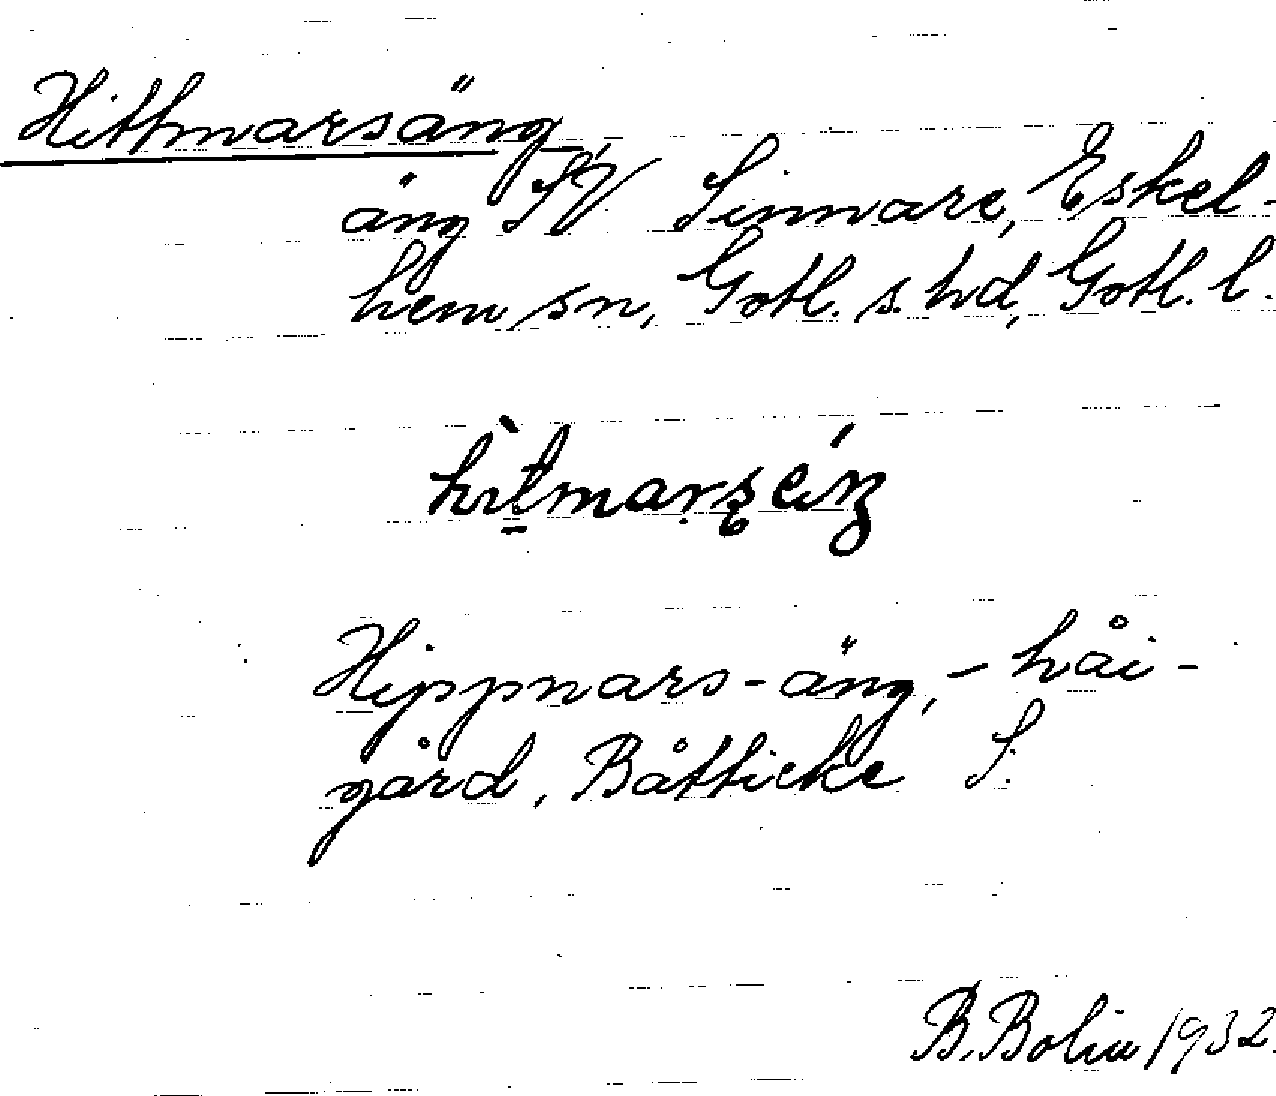 Hittmarsäng,
äng SV Sinnare, Eskel-
hem sn, Gotl. s. hd, Gotl. l.
hìtmarseíŋ
Hippnars-äng, - håi-
gård, Båtticke S.
B. Bolin 1932.